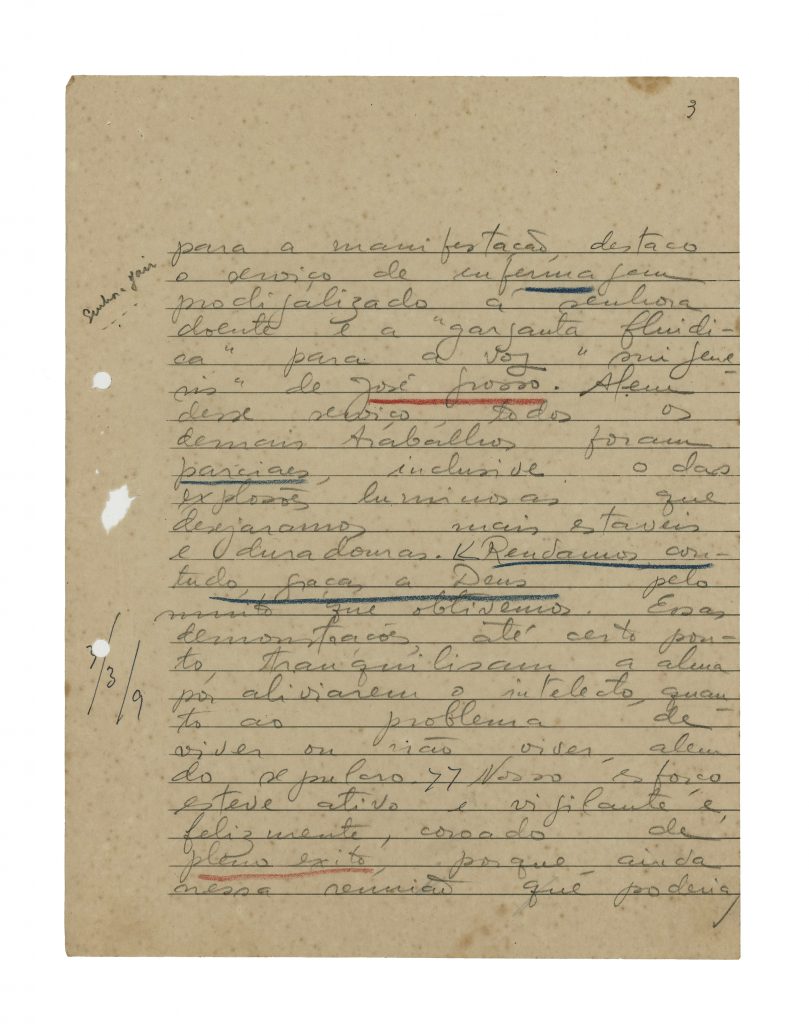 3
para a manifestação, destaco
o serviço de enfermagem
prodigalizado á senhora
doente e a "garganta fluidi-
ca" para a voz "sui gene-
ris" de José Grosso. Alem
desse serviço, todos os
demais trabalhos foram
parciaes, inclusive o das
explosões luminosas que
desejaramos mais estaveis
e duradouras. Rendamos, con-
tudo, graças a Deus pelo
muito que obtivemos. Essas
demonstrações, até certo pon-
to, tranquilisam a alma
por aliviarem o intelecto, quan-
to ao problema de
viver ou não viver, alem
do sepulcro. Nosso esforço
esteve ativo e vigilante e,
felizmente, coroado de
pleno exito, porque, ainda
nessa reunião que poderia
Senhora
3/3/9